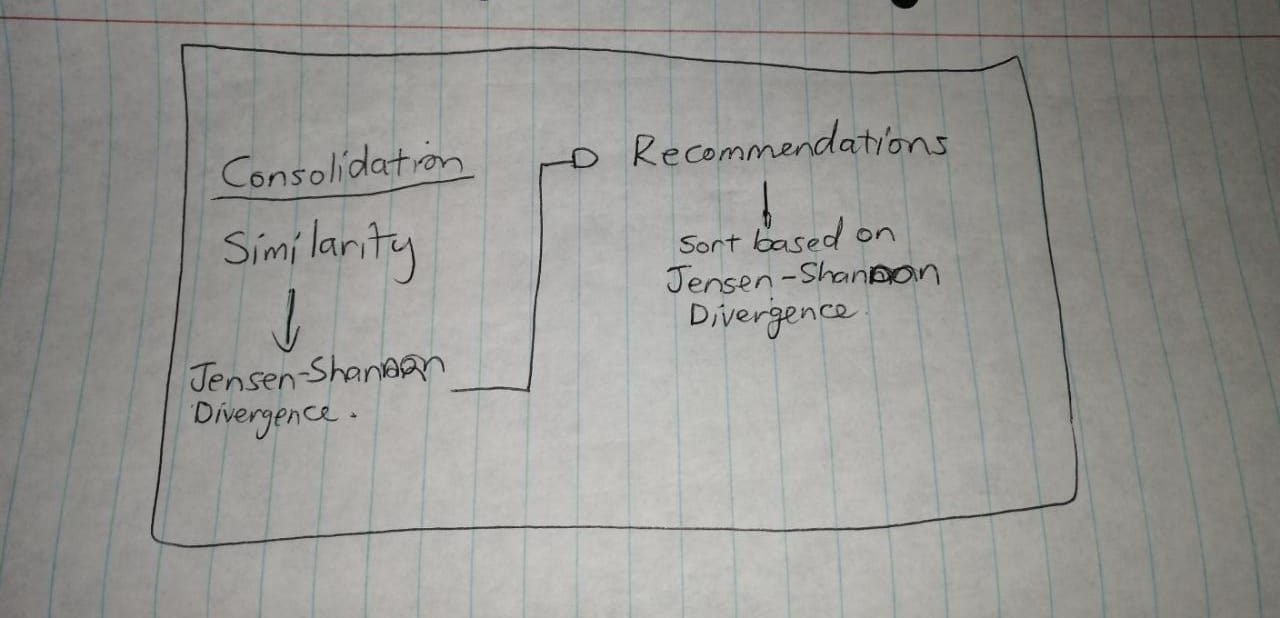 Consolidation
Similarity
Jensen-Shannon
Divergence.
Recommendations
Sort based on
Jensen-Shannon
Divergence.